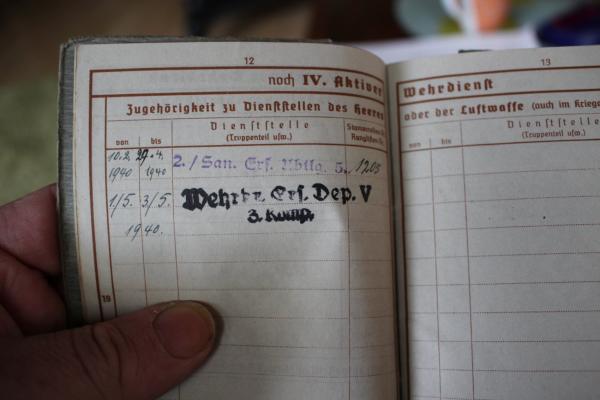 12
noch IV. Aktiver
Zugehörigkeit zu Dienststellen des Heeres
von bis
Dienststelle
(Truppenteil usw.)
10.2. 29.4.
1940 1940
2./San. Ers. Abtlg. 5. 1205
1/5. 3/5.
1940.
Wehrkr. Ers. Dep. V
3. Komp.
19
13
Wehrdienst
oder der Luftwaffe (auch im Kriege
von bis
Dienststelle
(Truppenteil usw.)